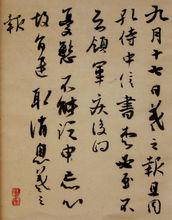 九月十七日羲之報且因
孔侍中信書想必至不
知領軍疾後問
憂懸不能須臾忘心
故旬遣取消息羲之
報